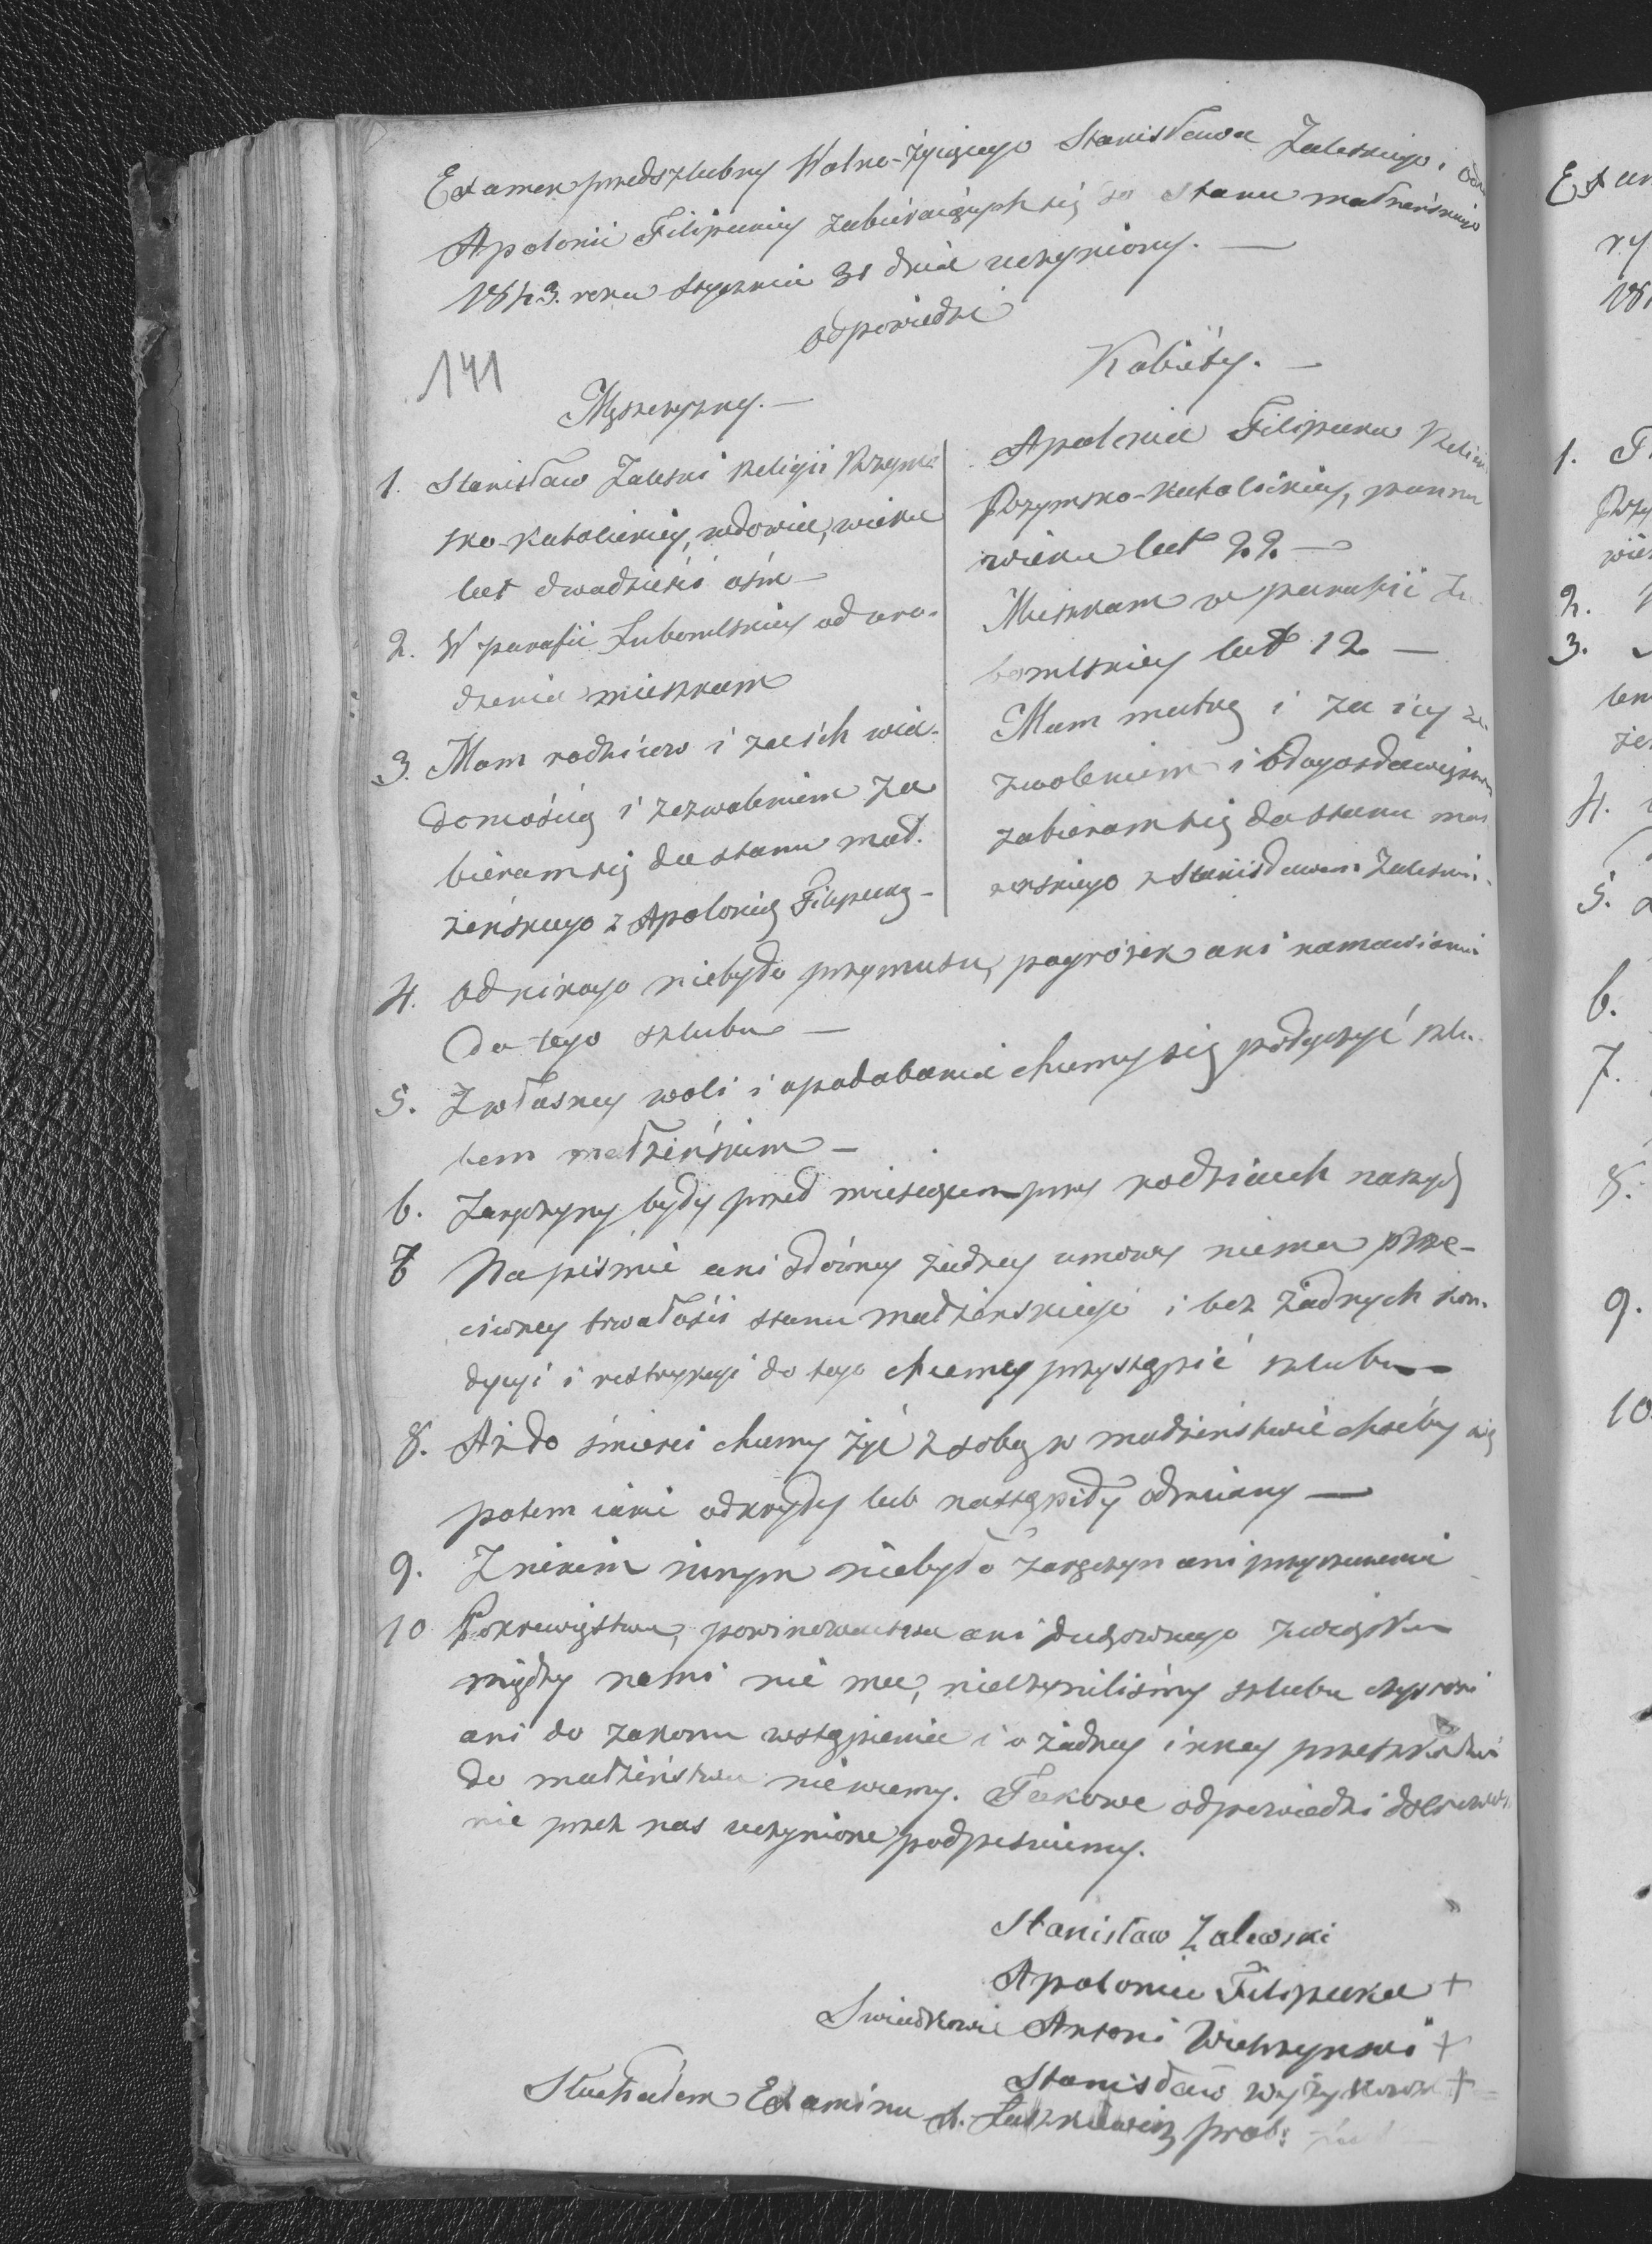 Examen przedszlubny Wolno-żyiącego Stanisława Zaleskiego i
Apolonii Filipeckiey zabieraiących się do stanu małżeńskiego
1843. roku Stycznia 31 dnia uczyniony. —
odpowiedzi
141
Męszczyzny. —
Kobiéty. —
1. Stanisław Zaleski Religii Rzym-
sko-katolickiey, wdowiec, wieku
lat dwadzieści ośm —
2. W parafii Lubomlskiey od uro-
dzenia mieszkam
3. Mam rodziców i za ich wia-
domością i zezwoleniem za
bieram się do stanu mał-
żeńskiego z Apolonią Filipecką —
Apolonia Filipecka Religii
Rzymsko-Katolickiey, panna
wieku lat 22. —
Mieszkam w parafii Lu-
bomlskiey lat 12 —
Mam matkę i za iey ze-
zwoleniem i błogosławieństwem
zabieram się do stanu mał
żeńskiego z Stanisławem Zaleskim.
4. Od nikogo niebyło przymusu, pogrózek ani namawiania
do tego szlubu —
5. Z własney woli i upodobania chcemy się połączyć szlu-
bem małżeńskim —
6. Zaręczyny były przed miesiącem przy rodzicach naszych
7 Na piśmie ani słówney żadney umowy niema prze-
ciwney trwałości stanu małżenskiego i bez żadnych kon-
dycyi i restrykcyi do tego chcemy przystąpić szlubu —
8. Aż do śmierci chcemy żyć z sobą w małżeństwie chcéby się
potem iakie odkryły lub nastąpiły odmiany —
9. Z nikim innym niebyło zaręczyn ani przyrzeczenia
10 Pokrewięstwa, powinowactwa ani duchownego związku
między nami nié ma, nieczyniliśmy szlubu czystości
ani do zakonu wstąpienia i o żadney inney przeszkodzie
do małżeństwa niewiemy. Takowe odpowiedzi dobrowol-
nie przez nas uczynione podpisuiemy.
Stanisław Zalewski
Apolonia Filipecka +
Swiadkowie Antoni Wielczynski +
Stanisław +
Słuchałem Examinu A. Laszkiewicz prob: